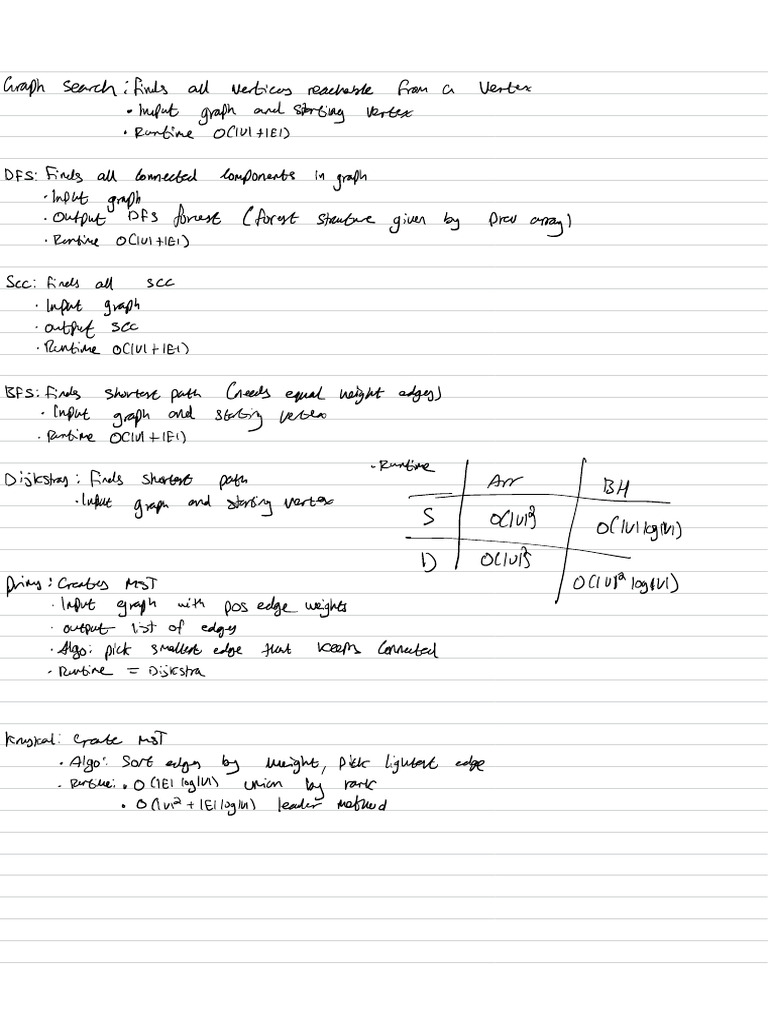 Graph search: finds all vertices reachable from a vertex
• Input graph and starting vertex
• Runtime O(|V|+|E|)
DFS: Finds all connected components in graph
• Input graph
• Output DFS forest (forest structure given by prev array)
• Runtime O(|V|+|E|)
SCC: Finds all SCC
• Input graph
• output SCC
• Runtime O(|V|+|E|)
BFS: Finds shortest path (needs equal weight edges)
• Input graph and starting vertex
• Runtime O(|V|+|E|)
Dijkstras: Finds shortest path
• Input graph and starting vertex
• Runtime
Arr BH
S O(|V|²) O(|V| log|V|)
D O(|V|²) O(|V|² log|V|)
Prims: Creates MST
• Input graph with pos edge weights
• output list of edges
• Algo: pick smallest edge that keeps connected
• Runtime = Dijkstra
Kruskal: Create MST
• Algo: Sort edges by weight, pick lightest edge
• Runtime: • O(|E| log|V|) union by rank
• O(|V|² + |E| log|V|) leader method